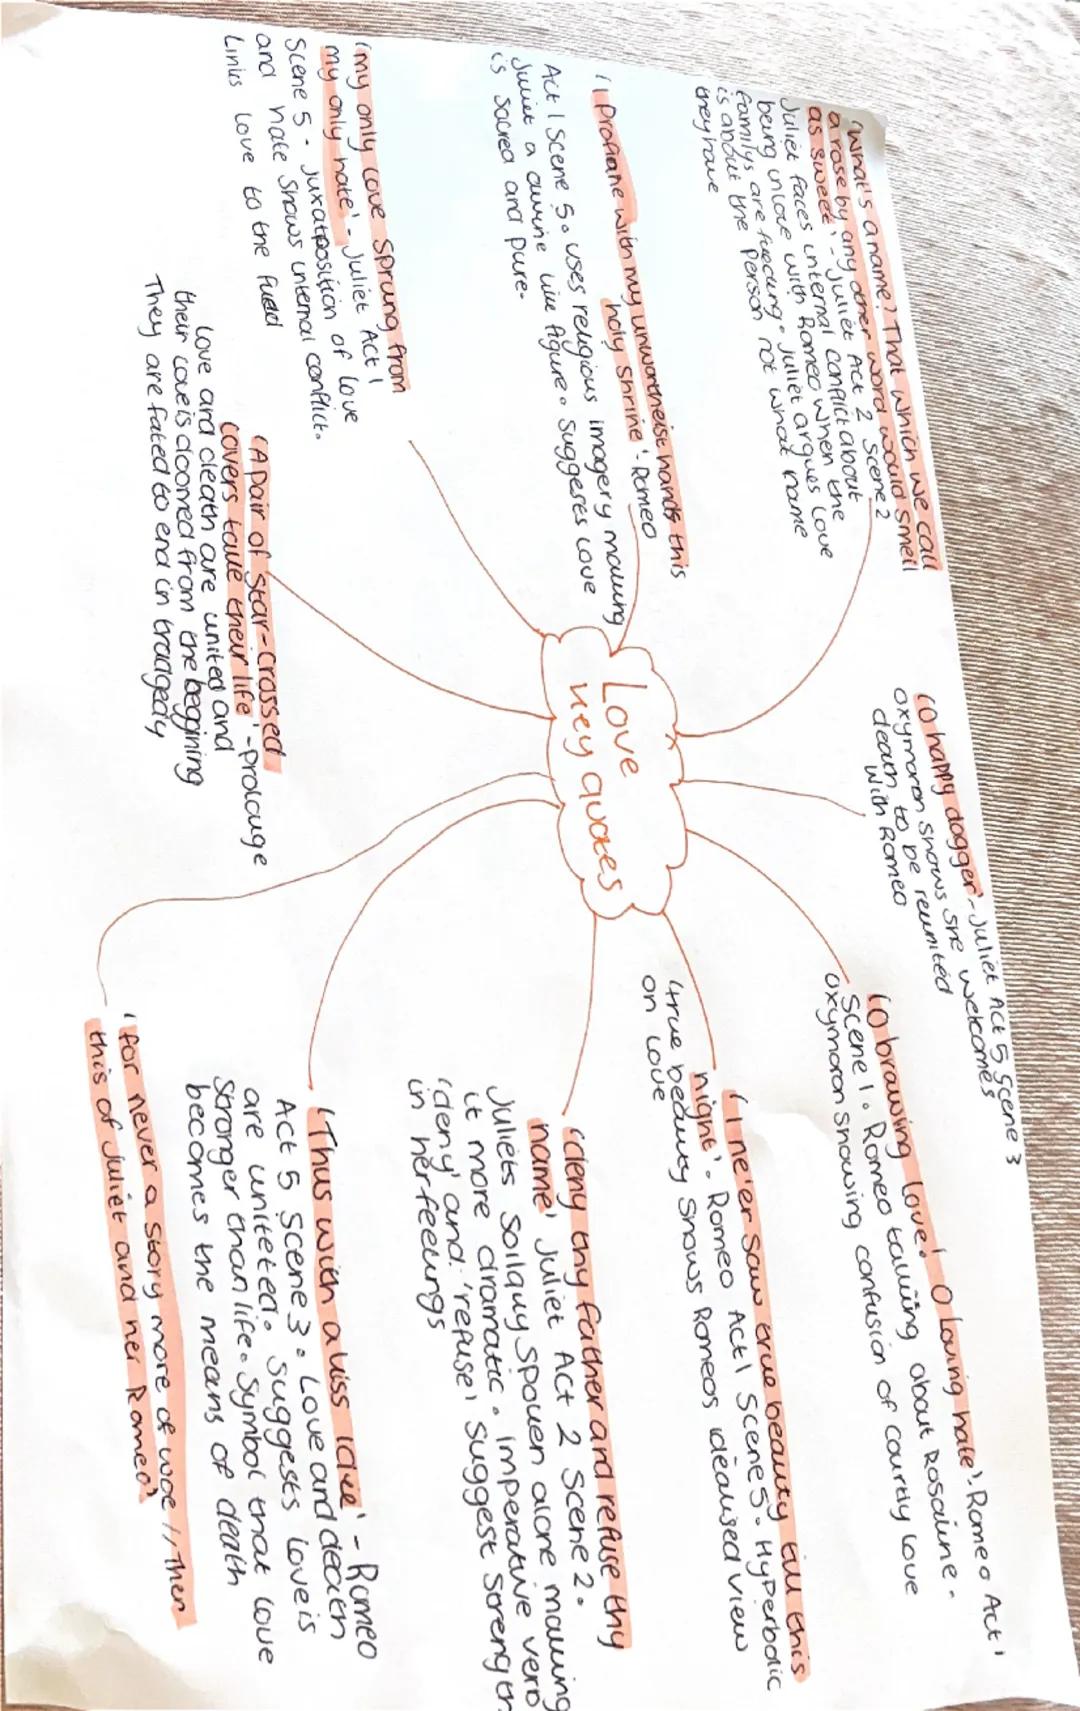 Love
key quotes
'What's a name? That which we call
a rose by any other word would smell
as sweet'. - Juliet Act 2 Scene 2
Juliet faces internal conflict about
being in love with Romeo when the
familys are fueding. Juliet argues love
is about the person not what name
they have
'I Profane with my unworthiest hands this
holy shrine'. Romeo
Act 1 Scene 5. uses religious imagery making
Juliet a divine like figure. Suggests love
is sacred and pure.
'my only love sprung from
my only hate' - Juliet Act 1
Scene 5 - Juxataposition of love
and hate shows internal conflict.
Links love to the fued
'A pair of star-crossed
lovers take their life' - prolouge
Love and death are united and
their love is doomed from the beggining
They are fated to end in tradgedy
'O happy dagger' - Juliet Act 5 Scene 3
oxymoron shows she welcomes
death to be reunited
with Romeo
'O brawling love! O loving hate'. Romeo Act 1
Scene 1. Romeo talking about Rosaline -
oxymoron showing confusion of courtly love
'I ne'er saw true beauty till this
night'. Romeo Act 1 Scene 5. Hyperbolic
'true beauty shows Romeos idealised view
on love
'deny thy father and refuse thy
name' Juliet Act 2 Scene 2.
Juliets Soilquy spoken alone making
it more dramatic. imperative verb
'deny' and 'refuse' suggest strength
in her feelings
'Thus with a kiss I die' - Romeo
Act 5 Scene 3. Love and death
are uniteted. Suggests love is
stronger than life. Symbol that love
becomes the means of death
'for never a story more of woe // Then
this of Juliet and her Romeo'